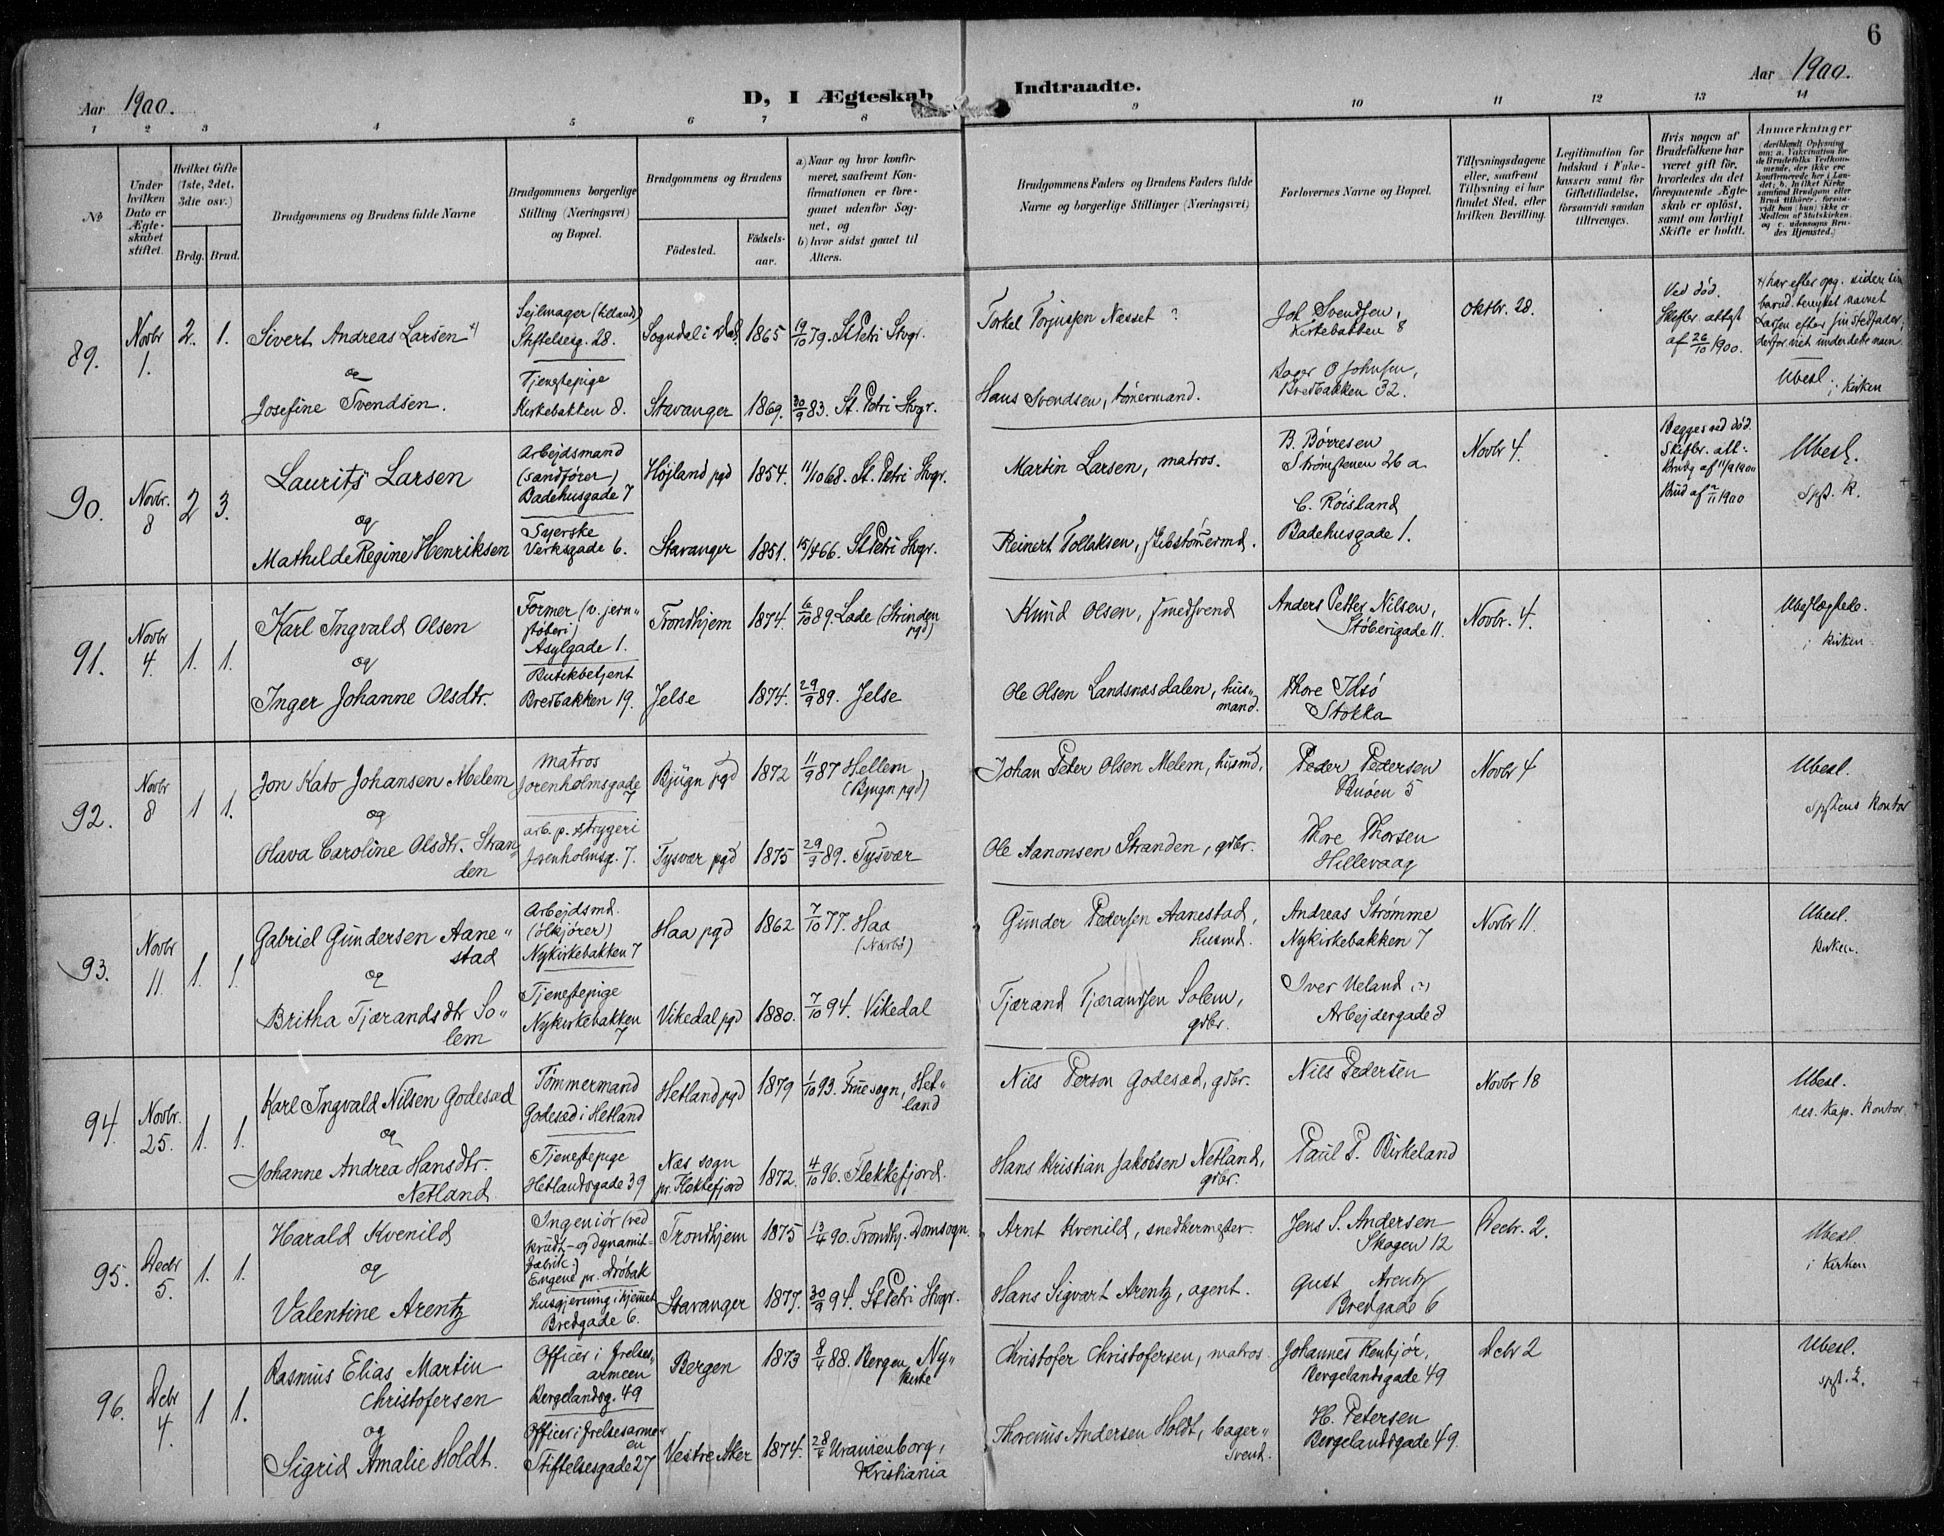 6
Aar 1900.
D, I Ægteskab Indtraadte.
Aar 1900.
1 2 3 4 5 6 7 8 9 10 11 12 13 14
No
Under hvilken Dato er Ægteskabet stiftet.
Hvilket Gifte (1ste, 2det, 3die osv.)
Brdg. Brud.
Brudgommens og Brudens fulde Navne
Brudgommens borgerlige Stilling (Næringsvei) og Bopæl.
Brudgommens og Brudens
Födested.
Födsels-aar.
a) Naar og hvor konfirmeret, saafremt Konfirmationen er foregaaet udenfor Sognet, og
b) hvor sidst gaaet til Alters.
Brudgommens Faders og Brudens Faders fulde Navne og borgerlige Stillinger (Næringsvei)
Forlovernes Navne og Bopæl.
Tillysningsdagene eller, saafremt Tillysning ei har fundet Sted, efter hvilken Bevilling.
Legitimation for Indskud i Enkekassen samt for Giftetilladelse, forsaavidt saadan tiltrænges.
Hvis nogen af Brudefolkene har været gift før, hvorledes da det foregaaende Ægteskab er oplöst, samt om lovligt Skifte er holdt.
Anmærkninger
89. Novbr 1. 2. 1.
Sivert Andreas Larsen
og
Josefine Svendsen.
Sejlmager
Stiftelsesg. 28.
Tjenestepige
Kirkebakken 8.
Sogndal i Dal. 1865 19/10 79. St Petri Stvgr.
Stavanger 1869. 30/9 83. St. Petri Stvgr.
Torkel Torjussen Nesset ?
Hans Svendsen, tømermand.
Joh Svendsen,
Kirkebakken 8
Bager O Johnsen,
Bredbakken 32.
Oktbr. 28.
Ved død.
Skifter. attest
af 26/10 1900.
har efter opg. siden sin
barnd. benyttet navnet
Larsen efter sin stedfader,
derfor viet under dette navn.
Ubesl. i kirken
90. Novbr. 8 2 3.
Laurits Larsen
og
Mathilde Regine Henriksen
Arbejdsmand
(sandfører)
Badehusgade 7
Syerske
Verksgade 6.
Højland pgd 1854. 11/10 68. St. Petri Stvgr.
Stavanger 1851. 15/4 66. St Petri Stvgr.
Martin Larsen, matros.
Reinert Tollaksen, skibstømermd.
B. Børresen
Strømstenen 26 a
C. Røisland
Badehusgade 1.
Novbr 4.
Begges ved død.
Skifter. att.
Ubesl.
Spst. K.
91. Novbr 4. 1. 1.
Karl Ingvald Olsen
og
Inger Johanne Olsdtr.
Former (v. jern-
støberi)
Asylgade 1.
Butikbetjent
Bredbakken 19.
Trondhjem 1874. 6/10 89. Lade (Strinden pgd)
Jelse 1874. 29/9 89. Jelse
Knud Olsen, smedsvend
Ole Olsen Landsnæsdalen, hus-
mand.
Anders Petter Nilsen,
Støberigade 11.
Thore Idsø
Stokka
Novbr. 4.
Ubeslægtede.
i kirken
92. Novbr 8 1 1.
Jon Kato Johansen Melem
og
Olava Caroline Olsdtr. Stran-
den
Matros
Jorenholmsgade 7
arb. p. strygeri
Jorenholmsg. 7.
Bjugn pgd 1872 11/9 87 Hellem
(Bjugn pgd)
Tysvær pgd 1875 29/9 89. Tysvær
Johan Peter Olsen Melem, husmd.
Ole Aanonsen Stranden, gdbr.
Peder Pedersen
Buøen 5
Thore Thorsen
Hillevaag
Novbr 4
Ubesl.
Spstens kontor
93. Novbr 11. 1. 1.
Gabriel Gundersen Aane-
stad
og
Britha Tjærandsdtr So-
lem
Arbejdsmd.
(ølkjører)
Nykirkebakken 7
Tjenestepige
Nykirkebakken 7
Haa pgd 1862 7/10 77. Haa
(Nærbø)
Vikedal pgd 1880. 7/10 94. Vikedal
Gunder Pedersen Aanestad,
husmd.
Tjærand Tjærandsen Solem,
gdbr.
Andreas Strømme
Nykirkebakken 7
Iver Ueland
Arbejdergade 8
Novbr 11.
Ubesl.
kirken.
94. Novbr. 25. 1. 1.
Karl Ingvald Nilsen Godesæd
og
Johanne Andrea Hansdtr.
Netland
Tømmermand
Godesæd i Hetland
Tjenestepige
Hetlandsgade 39
Hetland pgd 1879 1/10 93. Fruesogn, Het-
land
Næs sogn
pr. Flekkefjord 1872. 4/10 96. Flekkefjord.
Nils Person Godesæd, gdbr.
Hans Kristian Jakobsen Netland,
gdbr.
Nils Pedersen
Paul P. Birkeland
Novbr 18
Ubesl.
res. kap. kontor.
95. Decbr 5. 1. 1.
Harald Kvenild
og
Valentine Arentz
Ingeniør (ved
krudt- og dynamit-
fabrik.)
Engene pr. Drøbak
husgjerning i hjemmet
Bredgade 6.
Trondhjem 1875 13/4 90. Trondhj. Domsogn.
Stavanger 1877. 30/9 94. St Petri Stvgr.
Arnt Kvenild, snedkermester.
Hans Sigvart Arentz, agent.
Jens S. Andersen
Skagen 12
Gust Arentz
Bredgade 6
Decbr. 2.
Ubesl.
i kirken
96. Dcbr 4. 1 1.
Rasmus Elias Martin
Christofersen
og
Sigrid Amalie Holdt.
Officer i frelses-
armeen
Bergelandsg. 49
Officer i frelsesarme-
en
Stiftelsesgade 27
Bergen 1873 8/4 88. Bergen, Ny-
kirke
Vestre Aker 1874. Uranienborg,
Kristiania
Christofer Christofersen, matros.
Thorenius Andersen Holdt, bager-
svend.
Johannes Renbjør,
Bergelandsgade 49
H. Petersen
Bergelandsgade 49.
Dcbr 2
Ubesl.